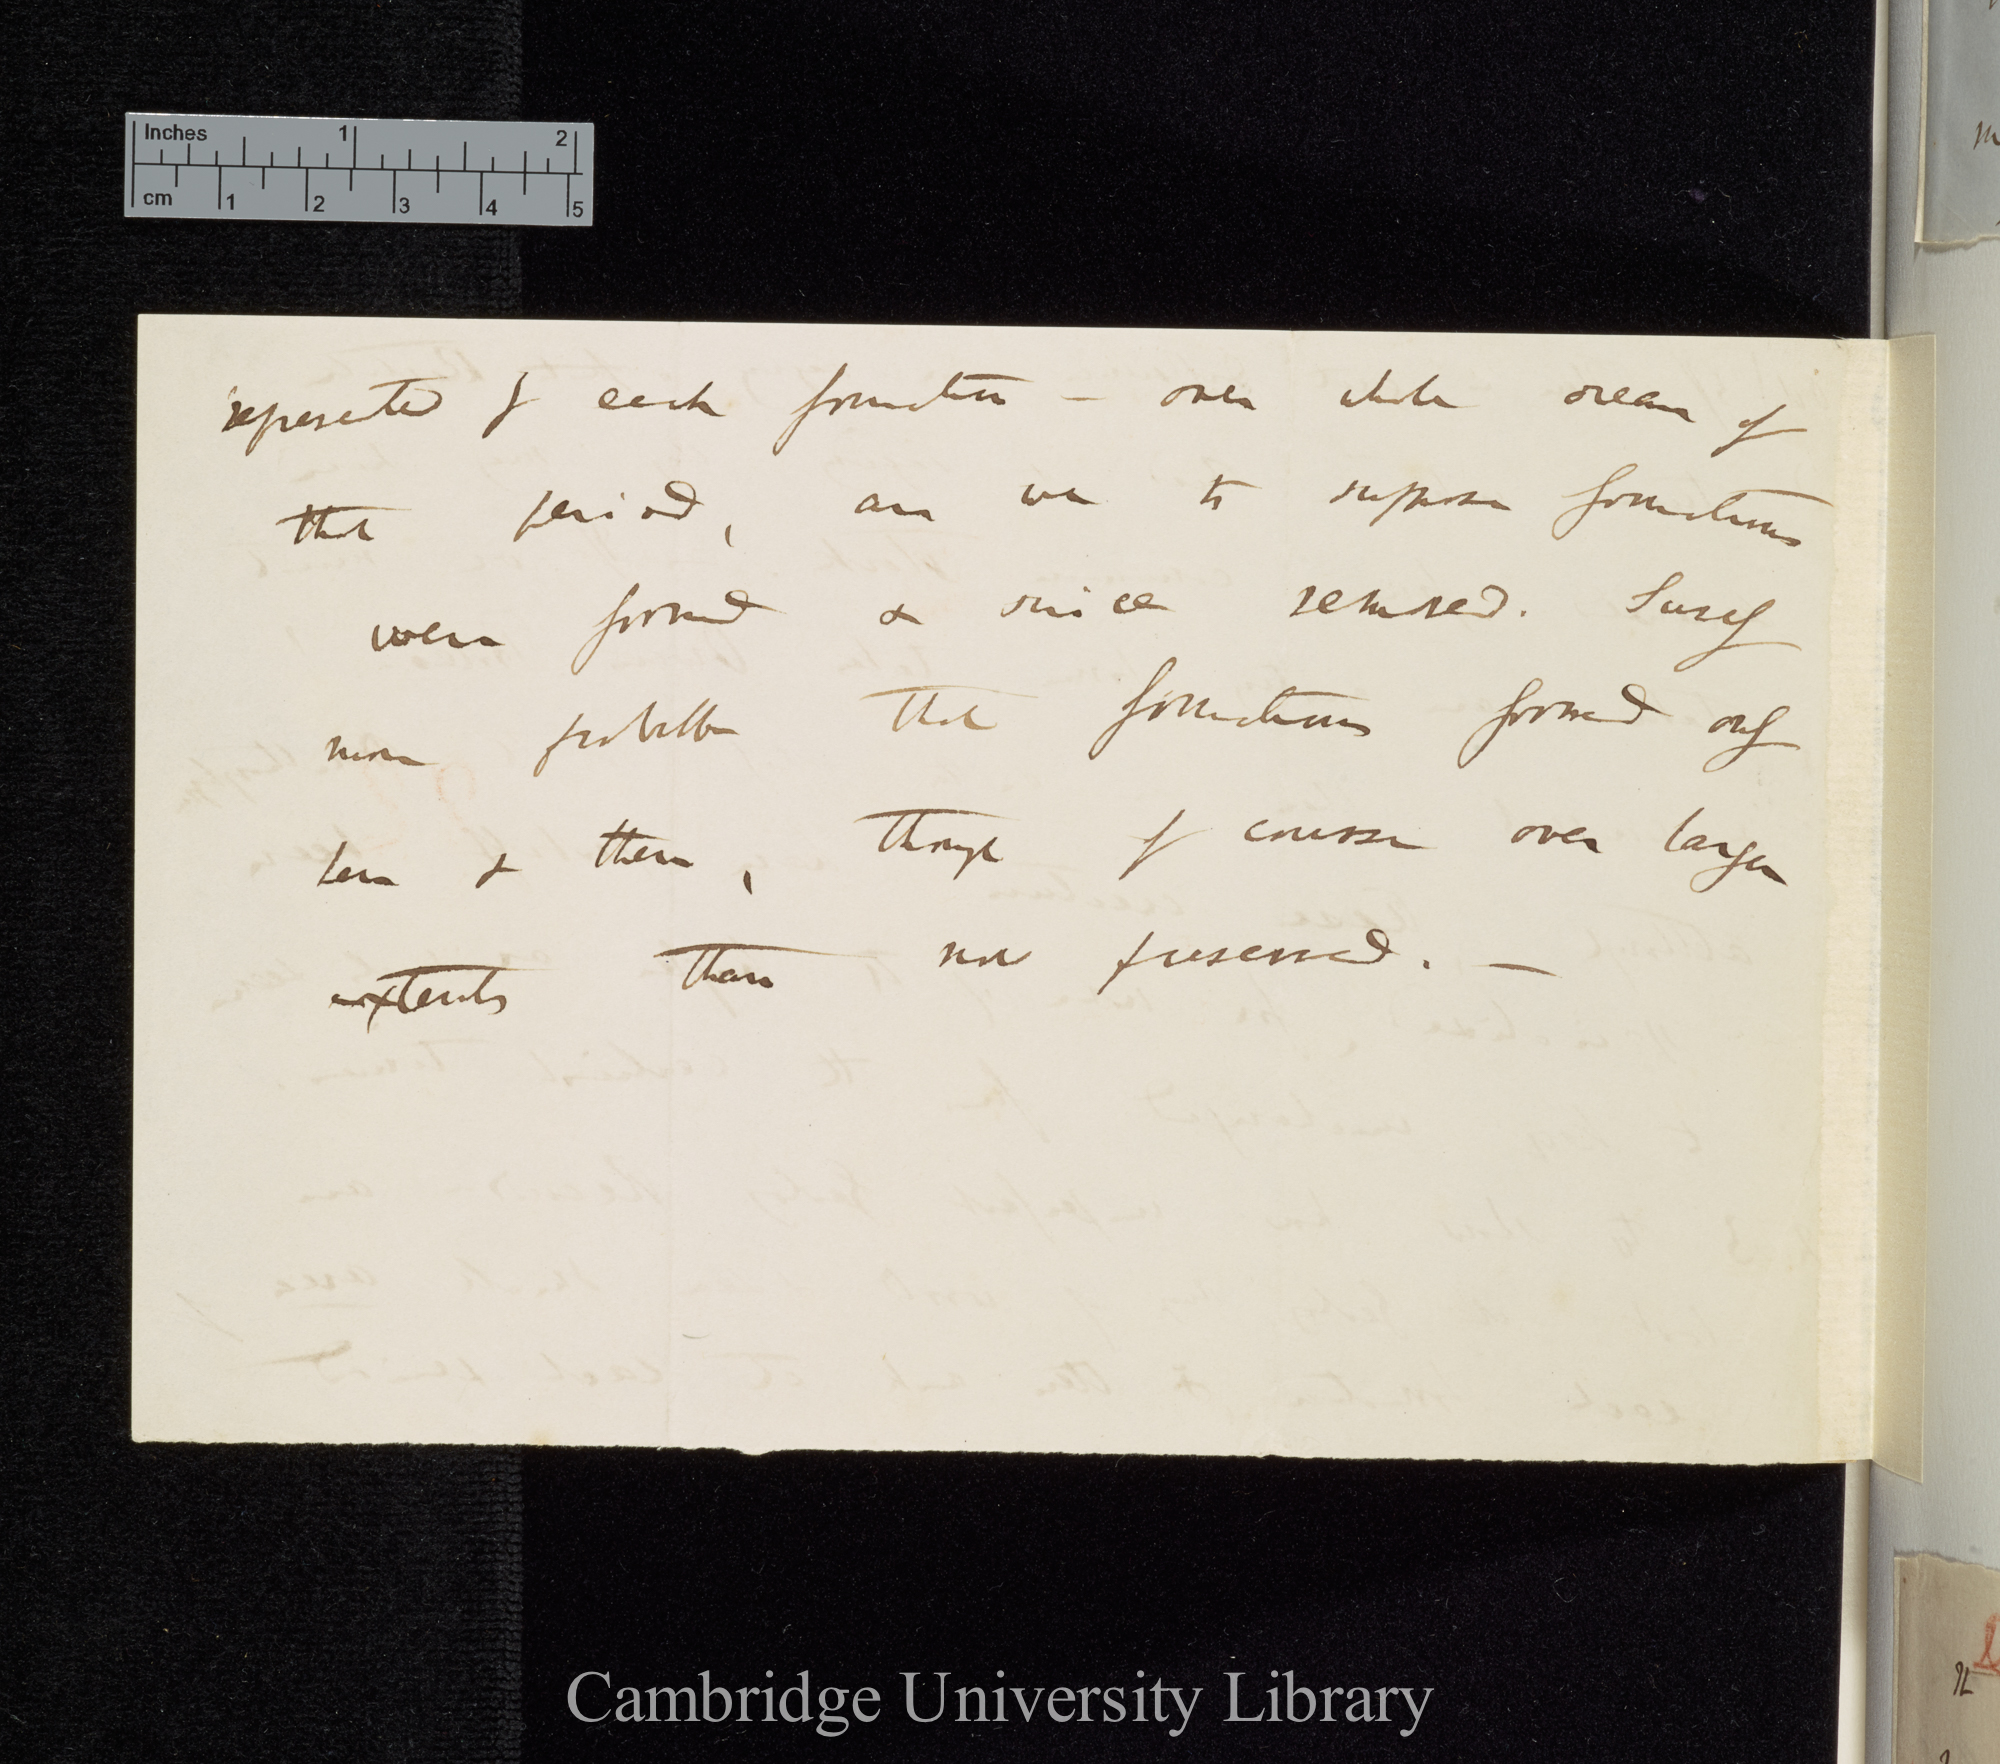 Inches 1 2
cm 1 2 3 4 5
represented of each formation — over whole ocean of
that period, are we to suppose formations
were formed & since removed. Surely
more probable that formations formed only
here & there, though of course over larger
extents than now preserved. —
Cambridge University Library